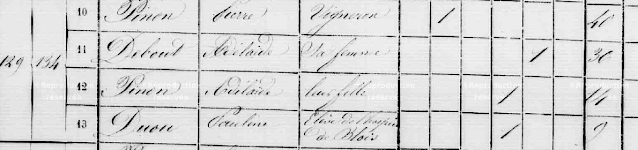 10 Pinon Pierre Vigneron 1 40
129 134 11 Debout Adélaïde Sa femme 1 36
12 Pinon Adélaïde leur fille 1 14
13 Duou Pauline Elève de l'hospice
de Blois 1 9